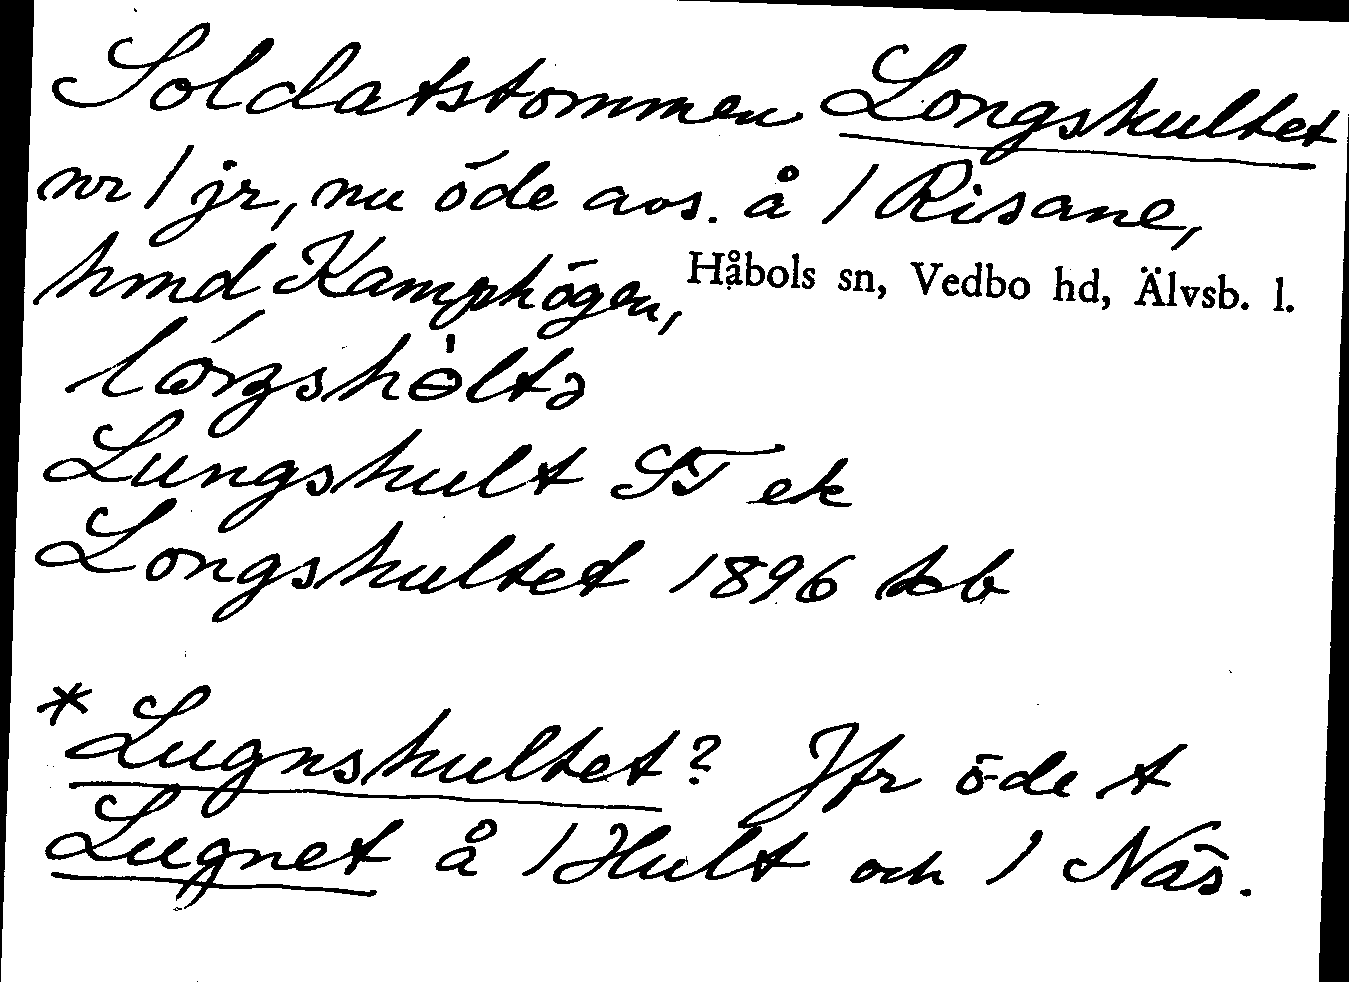 Soldatstommen Longshultet
nr 1 jr, nu öde avs. å 1 Risane,
hmd Kamphögen, Håbols sn, Vedbo hd, Älvsb. l.
Lungshult ST ek
Longshultet 1896 hob
*Lugnshultet? Jfr öde t
Lugnet å 1 Hult och 1 Näs.